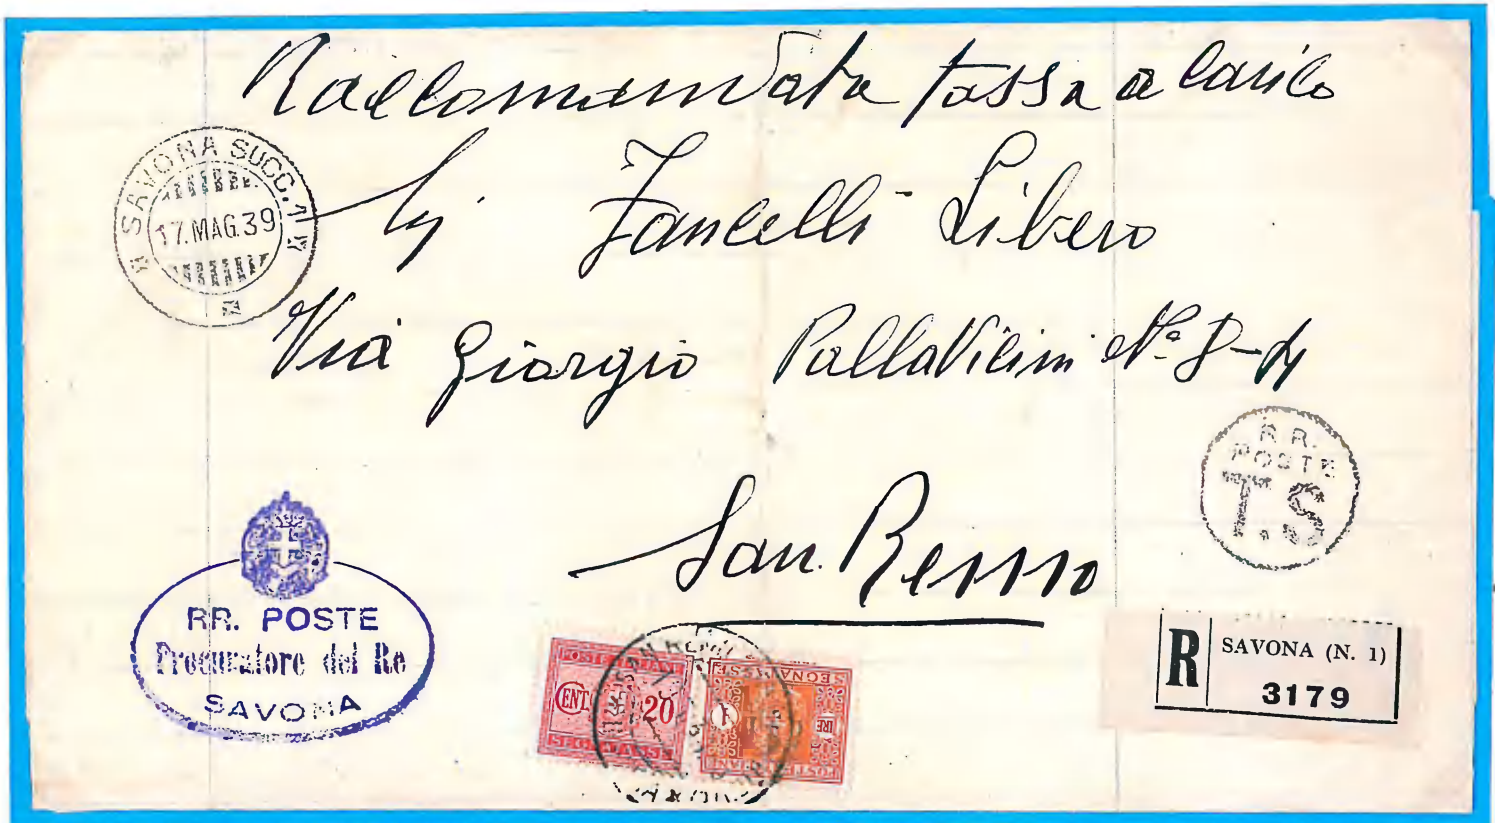 Raccomandata tassa a carico
SAVONA SUCC. 1
17.MAG.39
Zancelli Libero
Via Giorgio Pallavicini Nº 8-4
R.R.
POSTE
T.S
San Remo
RR. POSTE
Procuratore del Re
SAVONA
POSTE ITALIANE
CENT. 20
SEGNATASSE
R
SAVONA (N. 1)
3179